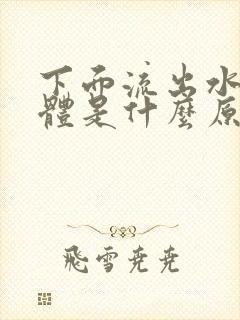 下面流出水
體是什麼原
飛雪堯堯